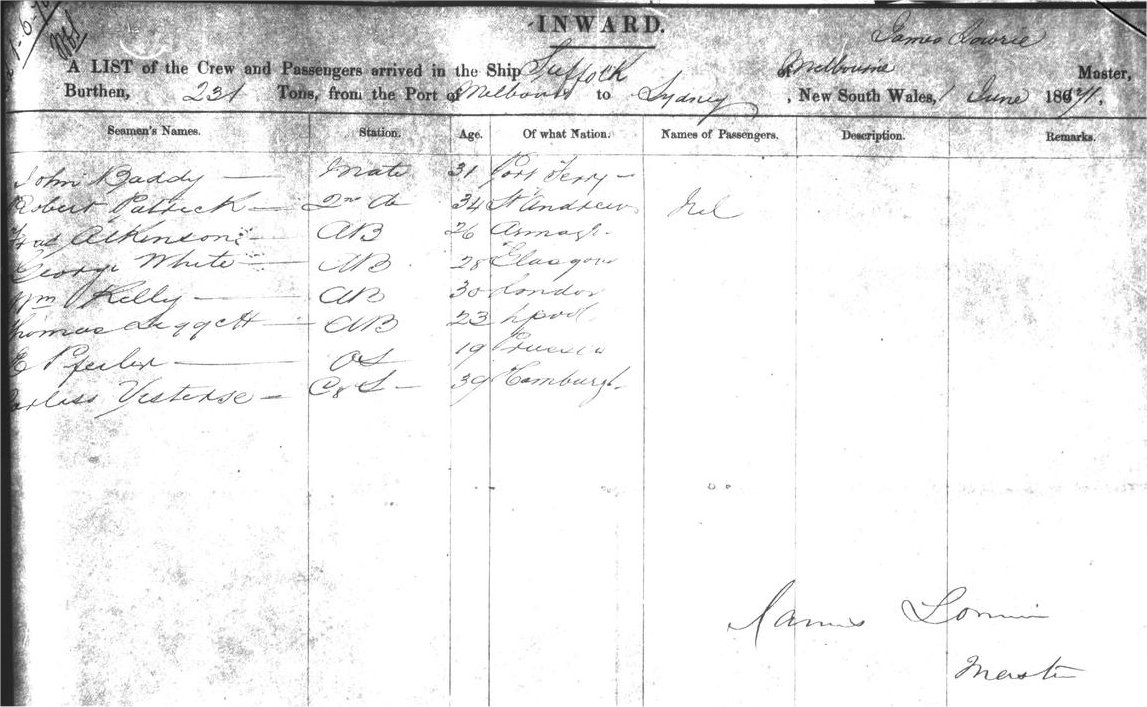 INWARD.
James Lowrie
A LIST of the Crew and Passengers arrived in the Ship Suffolk of Melbourne Master,
Burthen, 231 Tons, from the Port of Melbourne to Sydney, New South Wales, June 1871,
Seamen's Names. Station. Age. Of what Nation. Names of Passengers. Description. Remarks.
John Baddy — Mate 31 Port Ferry –
Robert Patrick — 2nd do 34 St Andrews Nil
Atkinson — AB 26 Armagh
George White — AB 28 Glasgow
Wm Kelly — AB 30 London
Thomas Leggett — AB 23 Lpool
E — OS 19 Prussia
Yesterse — C & S – 39 Hamburgh
James Lowrie
Master